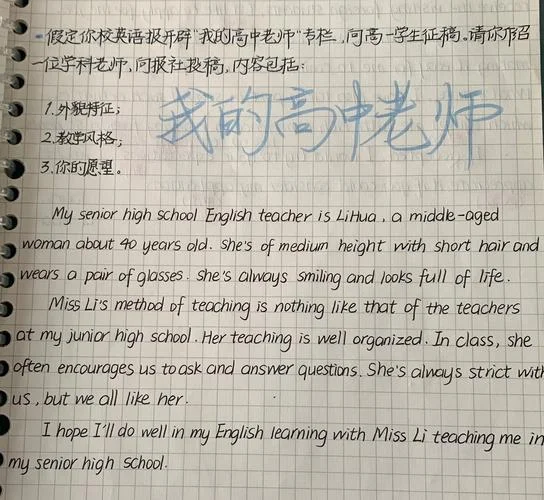 假定你校英语报开辟"我的高中老师"专栏,向高一学生征稿。请你介绍
一位学科老师,向报社投稿,内容包括:
1.外貌特征;
2.教学风格;
3.你的愿望。
我的高中老师
My senior high school English teacher is LiHua, a middle-aged
woman about 40 years old. She's of medium height with short hair and
wears a pair of glasses. She's always smiling and looks full of life.
Miss Li's method of teaching is nothing like that of the teachers
at my junior high school. Her teaching is well organized. In class, she
often encourages us to ask and answer questions. She's always strict with
us, but we all like her.
I hope I'll do well in my English learning with Miss Li teaching me in
my senior high school.